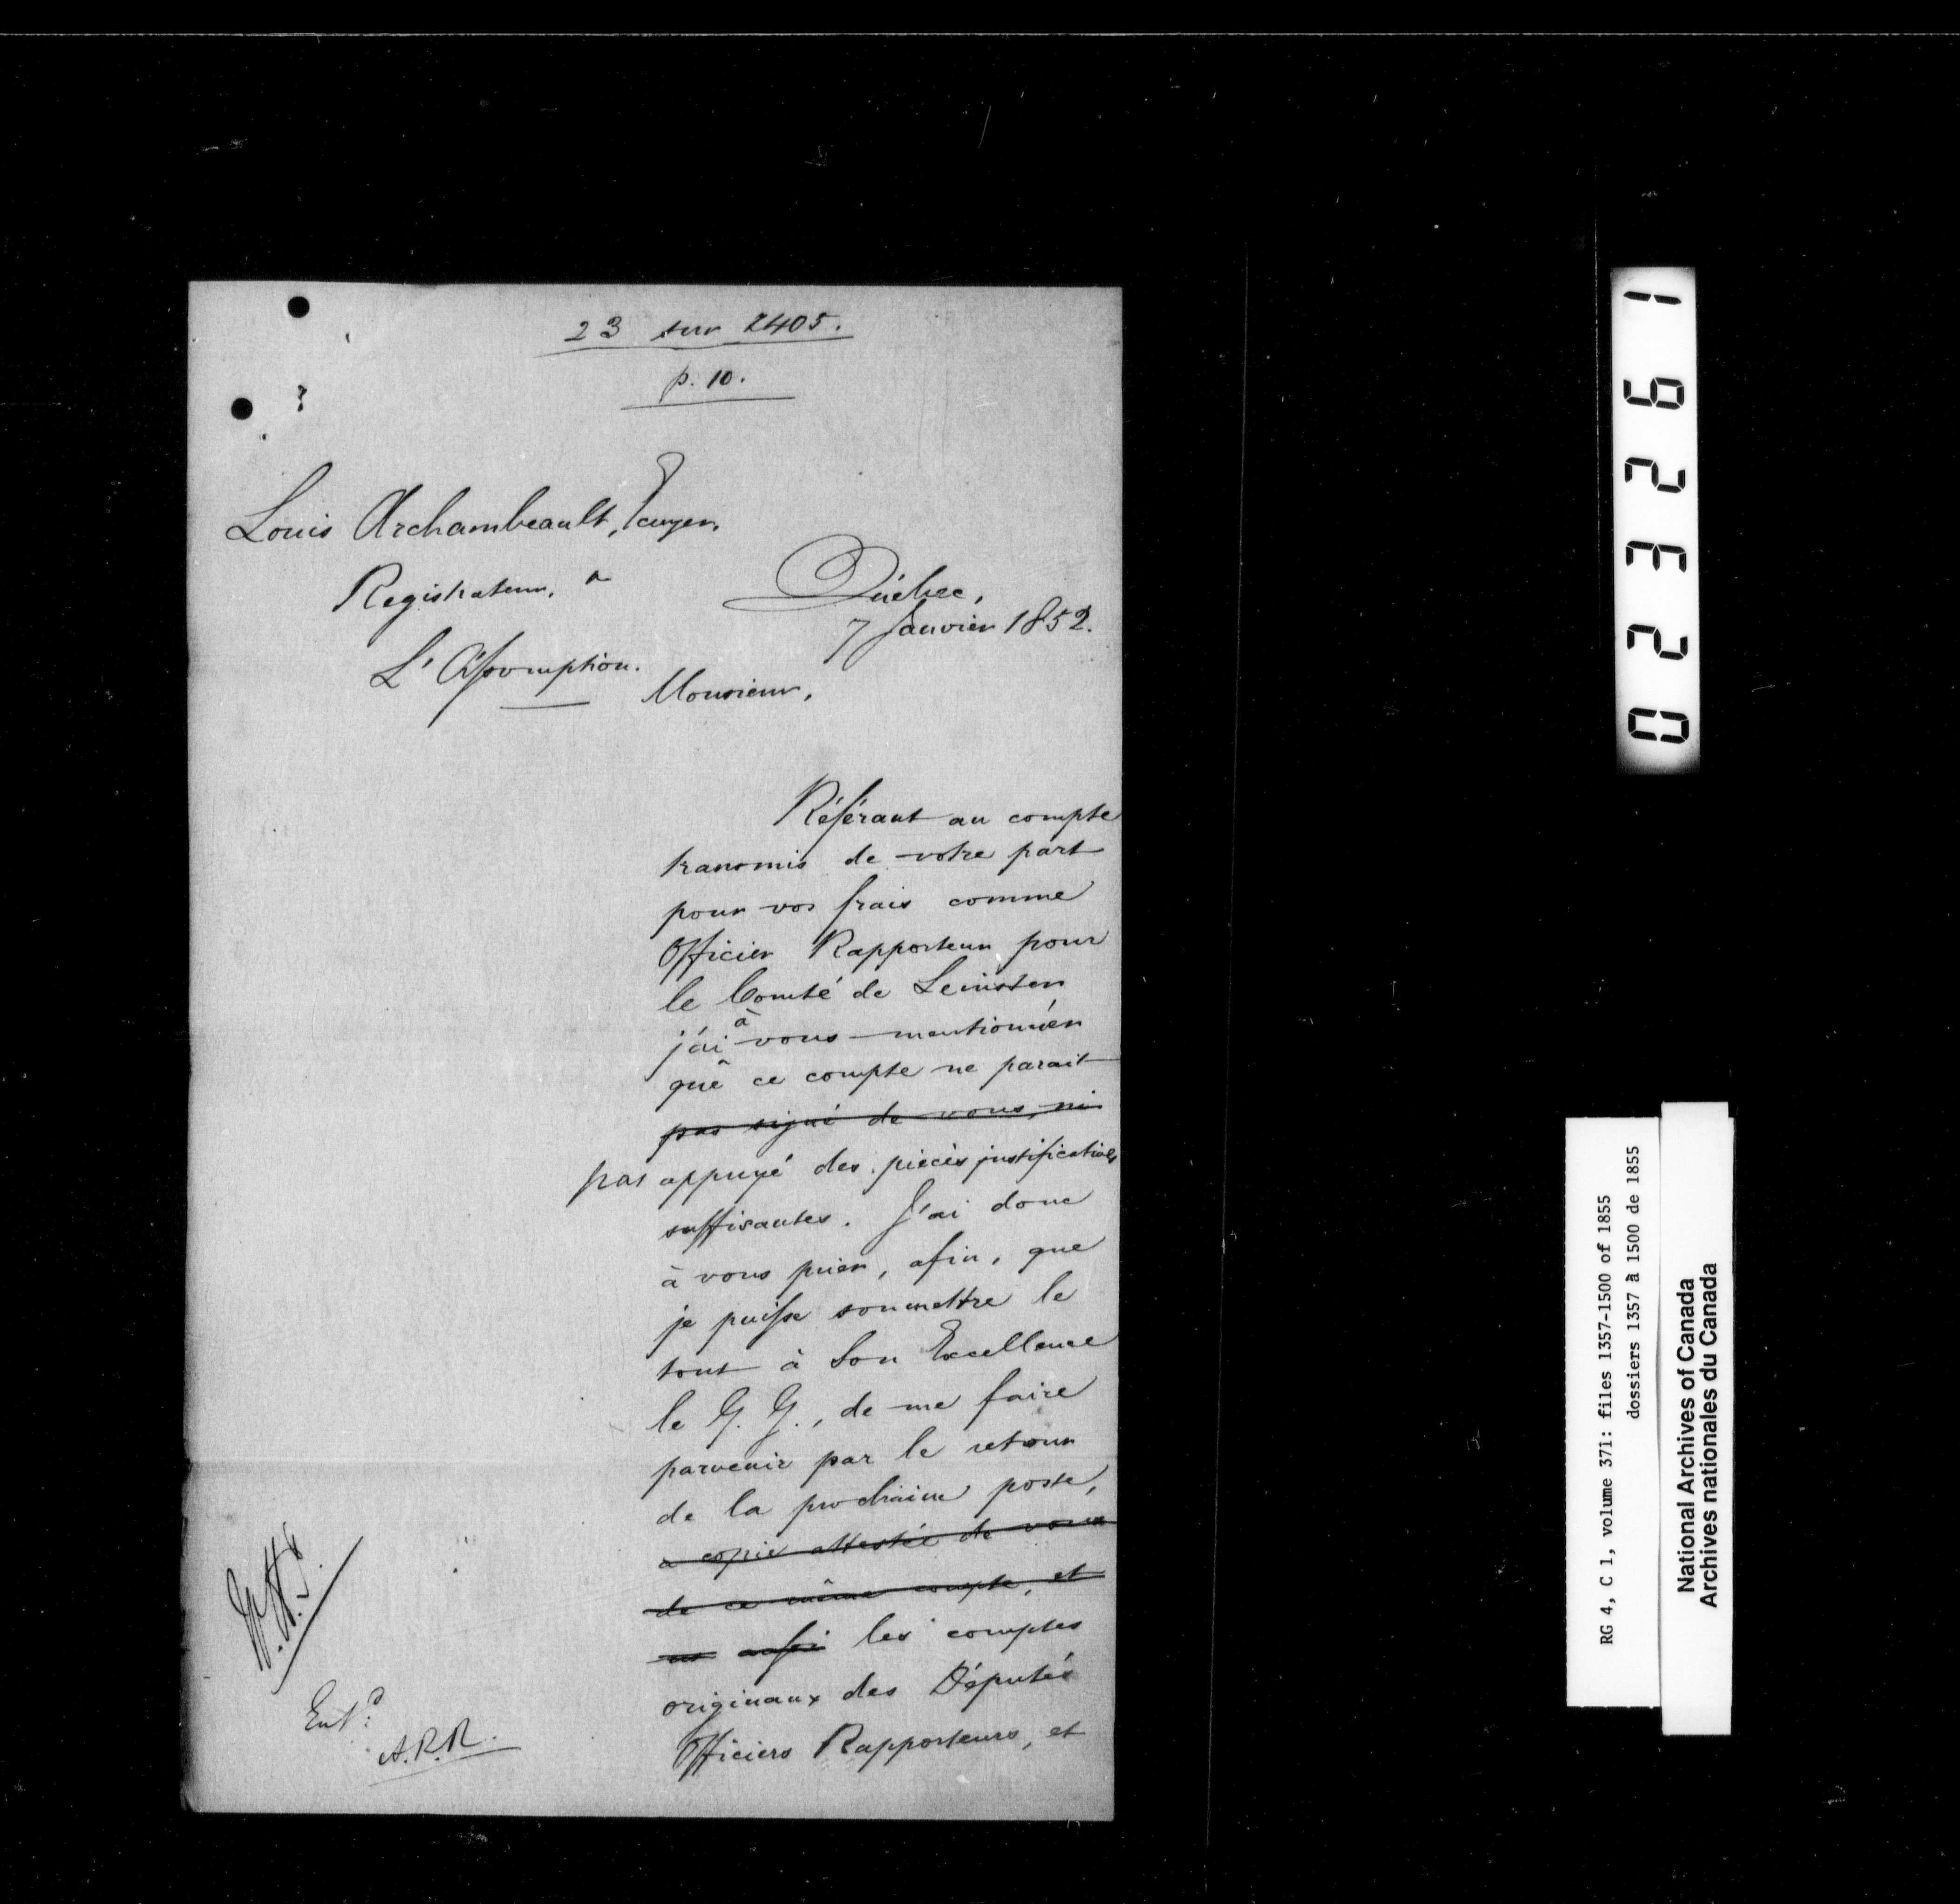 23 sur 2405.
p. 10.
Louis Archambeault, Ecuyer,
Registrateur, à
L'Assomption.
Québec,
7 Janvier 1852.
Monsieur,
Référant au compte
transmis de votre part
pour vos frais comme
Officier Rapporteur pour
le Comté de Leinster
j'ai à vous mentionner
que ce compte ne parait
pas signé de vous, ni
pas appuyé des pièces justificatives
suffisantes. J'ai donc
à vous prier, afin, que
je puisse soumettre le
tout à Son Excellence
le G. G., de me faire
parvenir par le retour
de la prochaine poste,
a copie attestée de vous
de ce même compte, et
aussi les comptes
originaux des Députés
Officiers Rapporteurs, et
Ent.d
A.R.R.
023261
RG 4, C 1, volume 371: files 1357-1500 of 1855
dossiers 1357 à 1500 de 1855
National Archives of Canada
Archives nationales du Canada